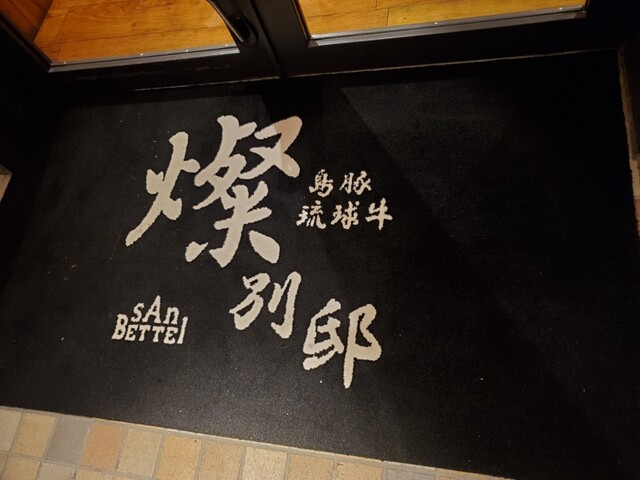 燦
鳥豚
琉球牛
別邸
sAn
BETTEI